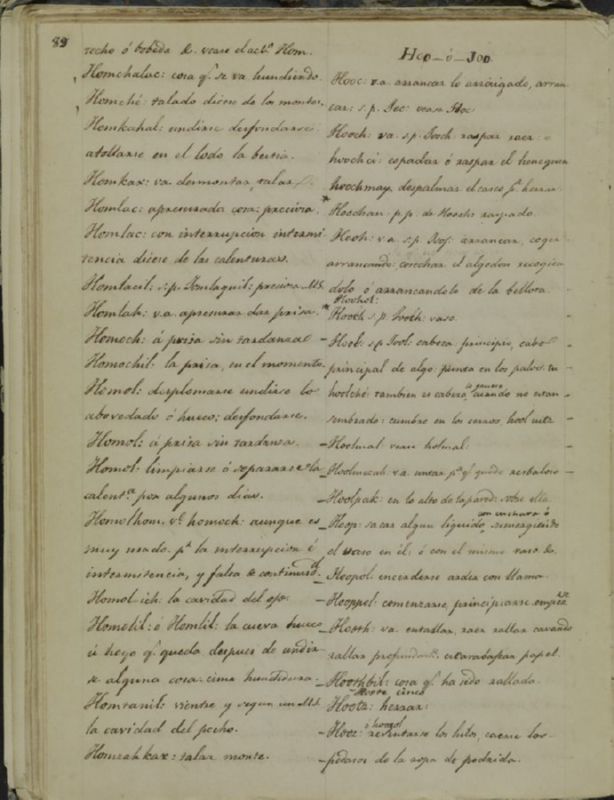 89
recho ó bobeda &. vease el actº Hom.
Homchaluc: cosa q.e se va hundiendo.
Homché: talado dicese de los montes.
Homkahal: undirse desfondarse
atollarse en el lodo la bestia.
Homkax: va desmontar, talar.
Homlac: apresurada cosa: precisa.
Homlac: con interrupcion intermi
tencia dicese de las calenturas.
Homlacil: s.p. precisa
Homlah: v.a. apresurar dar prisa.
Homoch: á prisa sin tardanza
Homochil: la prisa, en el momento.
Homol: desplomarse undirse lo
abovedado ó hueco; desfondarse.
Homol: á prisa sin tardanza.
Homol: limpiarse ó separarse la
calent.a por algunos dias.
Homolhom, v.e homoch: aunque es
muy usado p.a la interrupcion é
intermitencia, y falta de continuid.d
Homol ich: la cavidad del ojo.
Homolil: ó Homlil: la cueva hueco
ú hoyo q.e queda despues de undir
se alguna cosa: cima hundidura.
Homtanil: vientre y segun un MS.
la cavidad del pecho.
Homzahkax: talar monte.
Hoo_ó_Joo
Hooc: va arrancar lo arraigado, arran
car: s.p. vease
Hooch: va. s.p. raspar raer:
hoochci: espadar ó raspar el henequen
hoochmay, despalmar el casco p.a herrar
Hoochan: p.p. de Hooch: raspado.
Hooh: v.a. s.p. arrancar, coger
arrancando: cosechar el algodon recogien
dolo ó arrancandolo de la bellota.
Hooch s.p. vaso.
Hool: s.p. Jool: cabeza principio, cabo
principal de algo: punta en los palos: en
hoolché tambien es cabeza, cuando no estan
sembrado: cumbre en los cerros, hool uitz
Hoolmal vease holmal:
va. untar p.a q.e quede resbaloso
Hoolpak: en lo alto de la pared: sobre ella
con cuchara ó
Hoop: sacar algun liquido, sumergiendo
el vaso en él: ó con el mismo vaso &.
Hoopol: encenderse arder con llama.
Hooppol: comenzarse, principiarse, empezarse
Hooth: va. entallar, raer rallar cavando
rallar profundo: escarabajear papel.
Hoothbil: cosa q.e ha sido rallada.
cinco
Hootz: herrar:
Hooz: reventarse los hilos, caerse los
pedazos de la ropa de podrida.